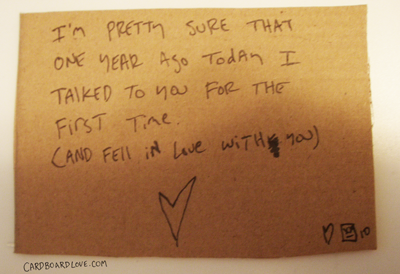 I'm PRETTY SURE THAT
ONE YEAR AGO TODAY I
TALKED TO YOU FOR THE
FIRST TIME.
(AND FELL IN LOVE WITH YOU)
CARDBOARDLOVE.COM